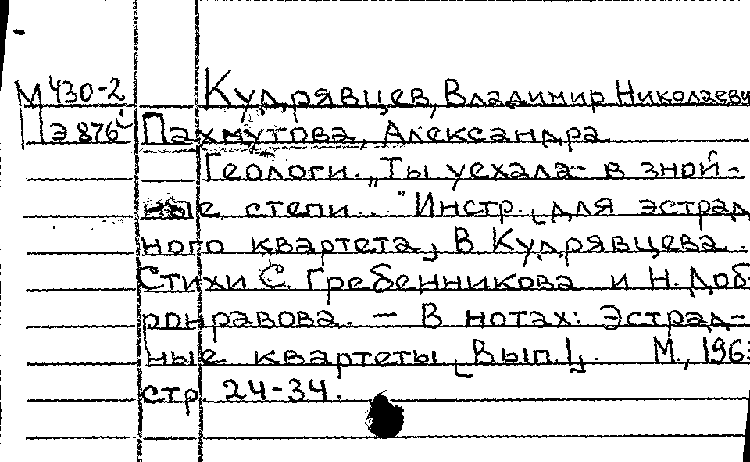 М 430-2 Кудрявцев, Владимир Николаеви
П э 876 Пахмутова, Александра
Геологи. „Ты уехала в зной-
ные степи..." Инстр. [для эстрад
ного квартета] В. Кудрявцева.
Стихи С. Гребенникова и Н. Доб
ронравова. — В нотах: Эстрад-
ные квартеты [Вып.1]. М., 196
стр. 24-34.